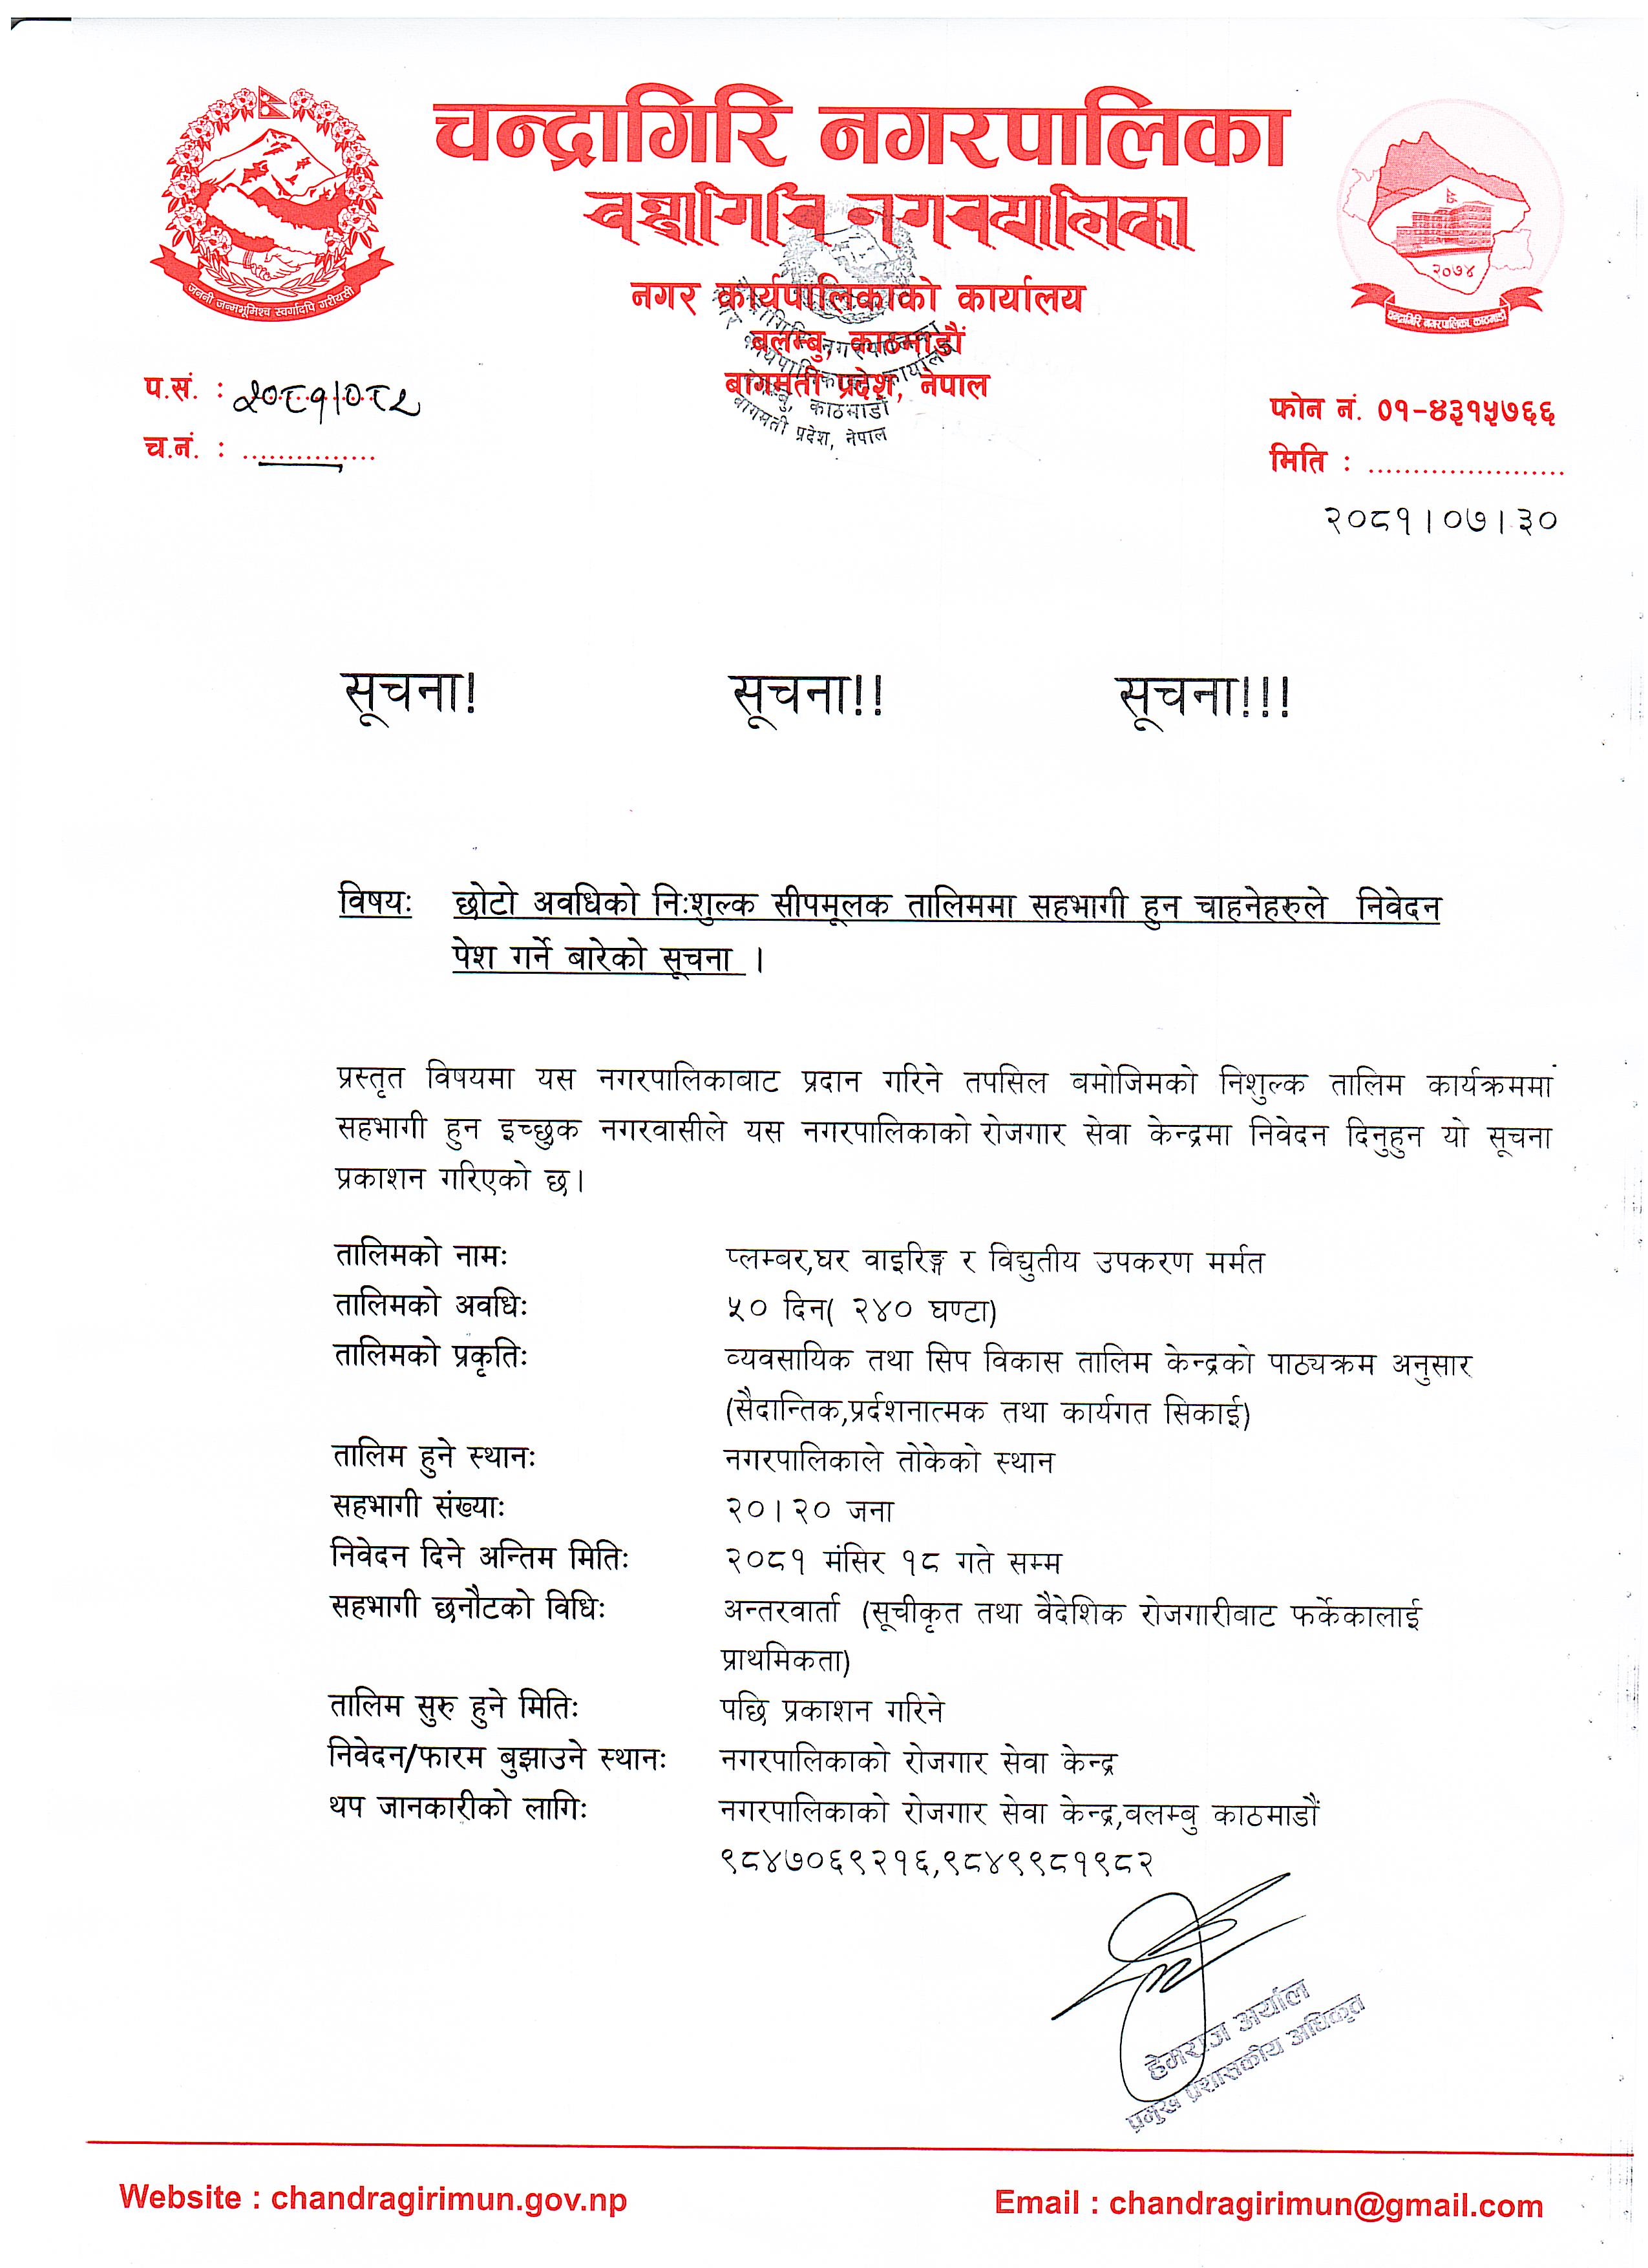 चन्द्रागिरि नगरपालिका
नगर कार्यपालिकाको कार्यालय
बलम्बु, काठमाडौं
बागमती प्रदेश, नेपाल
जननी जन्मभूमिश्च स्वर्गादपि गरीयसी
२०७४
चन्द्रागिरि नगरपालिका, काठमाडौं
प.सं. : २०८१/०८२
च.नं. : ...............
फोन नं. ०१-४३१५७६६
मिति : ......................
२०८१।०७।३०
सूचना! सूचना!! सूचना!!!
विषयः छोटो अवधिको निःशुल्क सीपमूलक तालिममा सहभागी हुन चाहनेहरुले निवेदन
पेश गर्ने बारेको सूचना ।
प्रस्तृत विषयमा यस नगरपालिकाबाट प्रदान गरिने तपसिल बमोजिमको निशुल्क तालिम कार्यक्रममां
सहभागी हुन इच्छुक नगरवासीले यस नगरपालिकाको रोजगार सेवा केन्द्रमा निवेदन दिनुहुन यो सूचना
प्रकाशन गरिएको छ।
तालिमको नामः प्लम्बर,घर वाइरिङ्ग र विद्युतीय उपकरण मर्मत
तालिमको अवधिः ५० दिन( २४० घण्टा)
तालिमको प्रकृतिः व्यवसायिक तथा सिप विकास तालिम केन्द्रको पाठ्यक्रम अनुसार
(सैदान्तिक,प्रर्दशनात्मक तथा कार्यगत सिकाई)
तालिम हुने स्थानः नगरपालिकाले तोकेको स्थान
सहभागी संख्याः २०।२० जना
निवेदन दिने अन्तिम मितिः २०८१ मंसिर १८ गते सम्म
सहभागी छनौटको विधिः अन्तरवार्ता (सूचीकृत तथा वैदेशिक रोजगारीबाट फर्केकालाई
प्राथमिकता)
तालिम सुरु हुने मितिः पछि प्रकाशन गरिने
निवेदन/फारम बुझाउने स्थानः नगरपालिकाको रोजगार सेवा केन्द्र
थप जानकारीको लागिः नगरपालिकाको रोजगार सेवा केन्द्र,वलम्बु काठमाडौं
९८४७०६९२१६,९८४९९८१९८२
हेमराज अर्याल
प्रमुख प्रशासकीय अधिकृत
Website : chandragirimun.gov.np
Email : chandragirimun@gmail.com